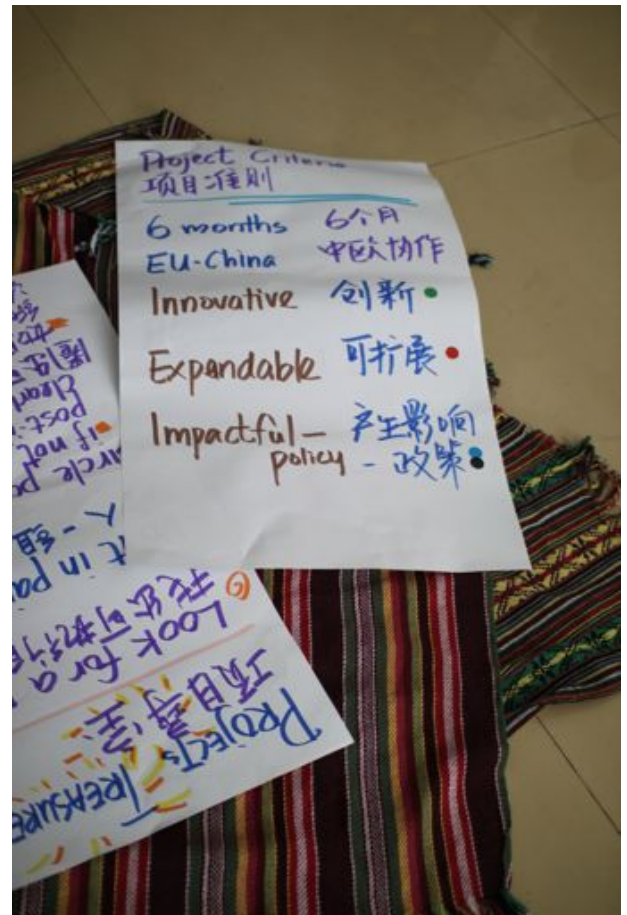 Project Criteria
项目准则
6 months 6个月
EU-China 中欧协作
Innovative 创新
Expandable 可扩展
Impactful — 产生影响
policy - 政策
PROJECTS TREASURE
项目寻宝
Look for a
找出可执行
in pa
人一组
circle po
if not
post-i
clear